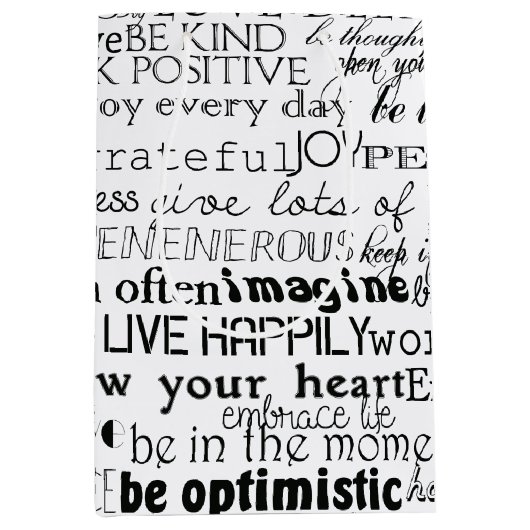 LOVE
ve BE KIND be though
K POSITIVE when you
oy every day be
rateful JOY PE
ess give lots of
EN ENEROUS keep i
often imagine b
LIVE HAPPILY wor
w your heart E
embrace life
e be in the mome
E be optimistic ho